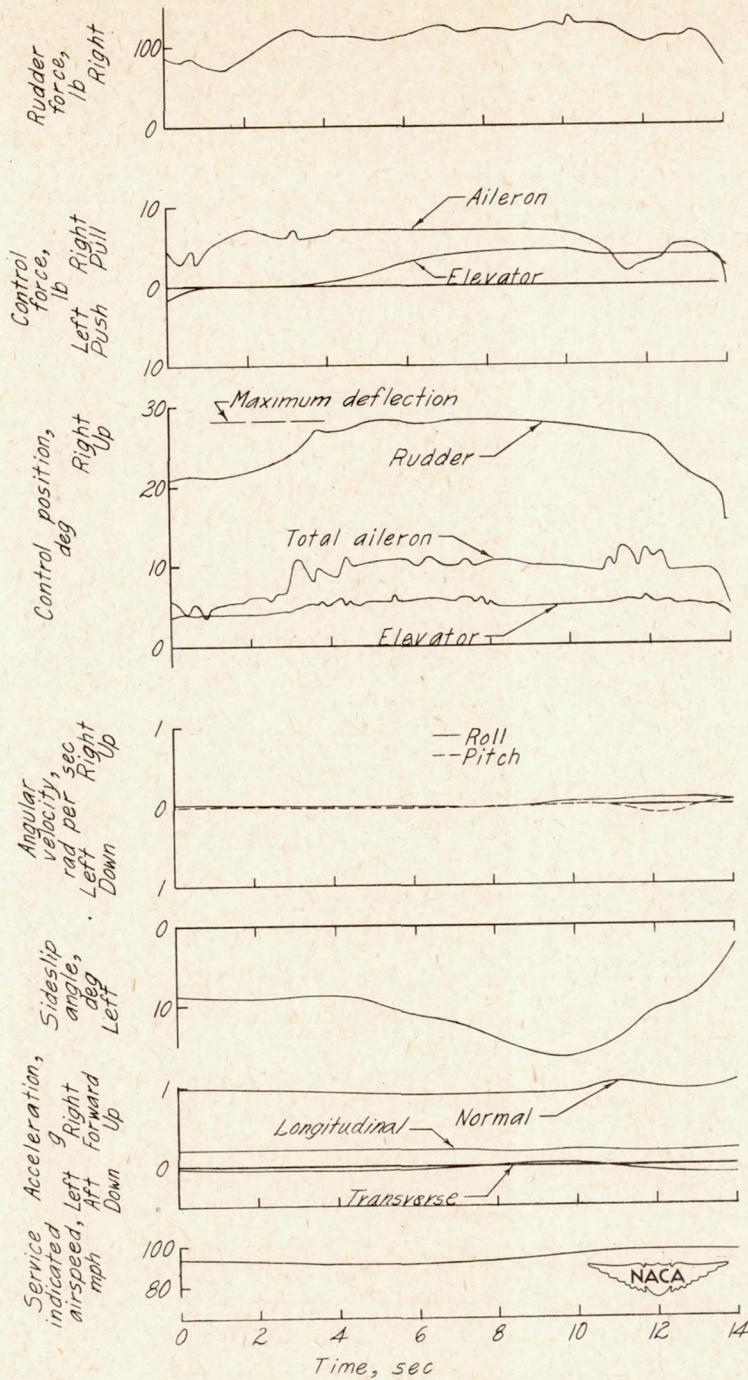 Rudder
force,
lb
Right
100
0
Control
force,
lb
Left Right
Push Pull
10
0
10
Aileron
Elevator
Control position,
deg
Right
Up
30
20
10
0
Maximum deflection
Rudder
Total aileron
Elevator
Angular
velocity,
rad per sec
Left Right
Down Up
1
0
1
Roll
Pitch
Sideslip
angle,
deg
Left
0
10
Acceleration,
g
Left Right
Aft Forward
Down Up
1
0
Longitudinal
Normal
Transverse
Service
indicated
airspeed,
mph
100
80
NACA
0 2 4 6 8 10 12 14
Time, sec